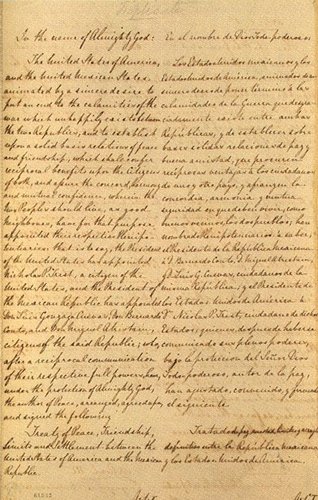 In the name of Almighty God:
The United States of America,
and the United Mexican States,
animated by a sincere desire to
put an end to the calamities of the
war which unhappily exists between
the two Republics, and to establish
upon a solid basis relations of peace
and friendship, which shall confer
reciprocal benefits upon the citizens
of both, and assure the concord, harmony
and mutual confidence, wherein the
two Peoples should live, as good
neighbours, have for that purpose
appointed their respective Plenipo-
tentiaries: that is to say, the President
of the United States has appointed
Nicholas P. Trist, a citizen of the
United States, and the President of
the Mexican Republic has appointed
Don Luis Gonzaga Cuevas, Don Bernardo
Couto, and Don Miguel Atristain,
citizens of the said Republic; who,
after a reciprocal communication
of their respective full powers, have,
under the protection of Almighty God,
the author of Peace, arranged, agreed upon,
and signed the following
Treaty of Peace, Friendship,
Limits and Settlement between the
United States of America and the Mexican
Republic.
En el nombre de Dios Todo-poderoso:
Los Estados Unidos mexicanos y los
Estados Unidos de América, animados de un
sincero deseo de poner término á las
calamidades de la guerra que desgra-
ciadamente existe entre ambas
Repúblicas, y de establecer sobre
bases sólidas relaciones de paz y
buena amistad, que procuren
recíprocas ventajas á los ciudadanos
de uno y otro pays, y afianzen la
concordia, armonía y mutua
seguridad en que deben vivir, como
buenos vecinos, los dos pueblos; han
nombrado Plenipotenciarios á saber;
el Presidente de la República mexicana
á D. Bernardo Couto, D. Miguel Atristain,
y D. Luis G. Cuevas, ciudadanos de la
misma República; y el Presidente de
los Estados Unidos de América á
D. Nicolas P. Trist, ciudadano de dichos
Estados; quienes, despues de haberse
comunicado sus plenos poderes,
bajo la proteccion del Señor Dios
Todo-poderoso, autor de la paz,
han ajustado, convenido, y firmado
el siguiente
Tratado de paz, amistad, límites y arreglo
definitivo entre la República mexicana
y los Estados Unidos de América.